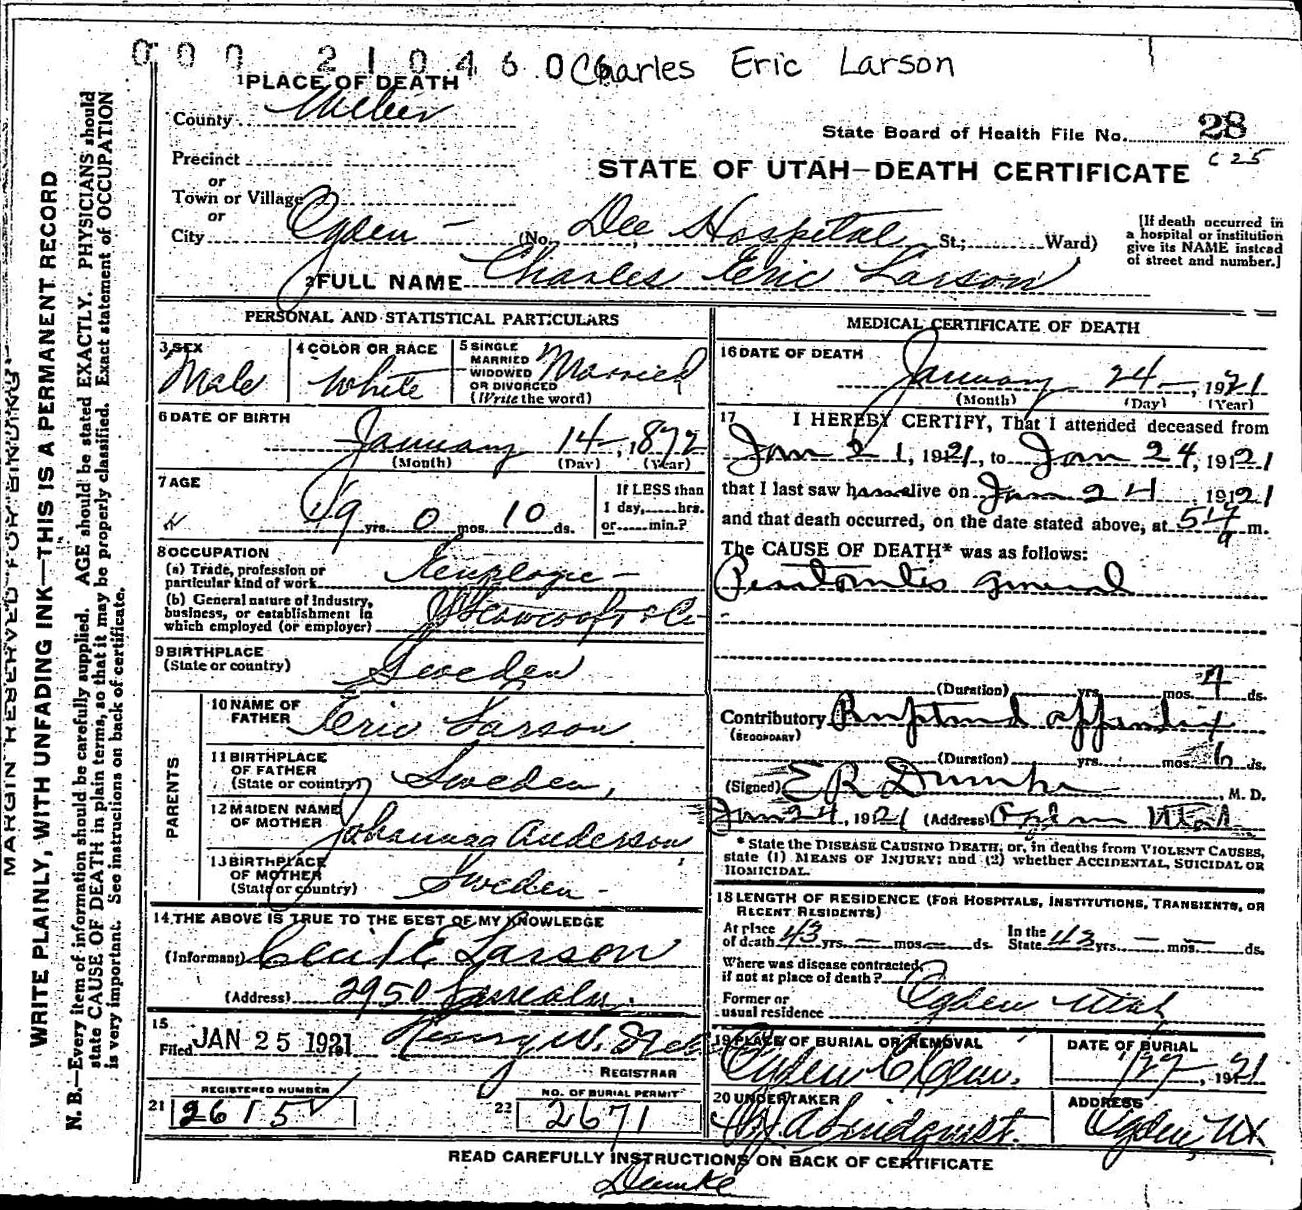 0 0 0 2 1 0 4 6 0 0 6 Charles Eric Larson
1 PLACE OF DEATH
County Weber
State Board of Health File No. 28
C 25
Precinct
or
STATE OF UTAH—DEATH CERTIFICATE
Town or Village
or
City Ogden — (No. Dee Hospital St.; Ward)
[If death occurred in
a hospital or institution
give its NAME instead
of street and number.]
2 FULL NAME Charles Eric Larson
PERSONAL AND STATISTICAL PARTICULARS
3 SEX
Male
4 COLOR OR RACE
White
5 SINGLE
MARRIED
WIDOWED
OR DIVORCED
(Write the word)
Married
6 DATE OF BIRTH
January 14—, 1872
(Month) (Day) (Year)
7 AGE
49 yrs. 0 mos. 10 ds.
If LESS than
1 day, hrs.
or min.?
8 OCCUPATION
(a) Trade, profession or
particular kind of work Employee —
(b) General nature of industry,
business, or establishment in
which employed (or employer) J Scowcroft & Co
9 BIRTHPLACE
(State or country) Sweden
PARENTS
10 NAME OF
FATHER Eric Larson
11 BIRTHPLACE
OF FATHER
(State or country) Sweden,
12 MAIDEN NAME
OF MOTHER Johannaa Anderson
13 BIRTHPLACE
OF MOTHER
(State or country) Sweden —
14 THE ABOVE IS TRUE TO THE BEST OF MY KNOWLEDGE
(Informant) Cecil E Larson
(Address) 2950 Lincoln.
15
Filed JAN 25 1921 Henry W.
REGISTRAR
REGISTERED NUMBER
21 2615
NO. OF BURIAL PERMIT
22 2671
MEDICAL CERTIFICATE OF DEATH
16 DATE OF DEATH
January 24—, 1921
(Month) (Day) (Year)
17 I HEREBY CERTIFY, That I attended deceased from
Jan 21, 1921, to Jan 24, 1921
that I last saw h alive on Jan 24, 1921
and that death occurred, on the date stated above, at m.
The CAUSE OF DEATH* was as follows:
Peritonitis General
(Duration) yrs. mos. 4 ds.
Contributory Ruptured appendix
(SECONDARY)
(Duration) yrs. mos. 6 ds.
(Signed) E R Dumke M. D.
Jan 24, 1921 (Address) Ogden Utah
* State the DISEASE CAUSING DEATH; or, in deaths from VIOLENT CAUSES,
state (1) MEANS OF INJURY; and (2) whether ACCIDENTAL, SUICIDAL OR
HOMICIDAL.
18 LENGTH OF RESIDENCE (FOR HOSPITALS, INSTITUTIONS, TRANSIENTS, OR
RECENT RESIDENTS)
At place
of death 43 yrs. — mos. — ds.
In the
State 43 yrs. — mos. — ds.
Where was disease contracted,
if not at place of death?
Former or
usual residence Ogden Utah
19 PLACE OF BURIAL OR REMOVAL
Ogden C Cem.
DATE OF BURIAL
1/27, 1921
20 UNDERTAKER
Lindquist.
ADDRESS
Ogden UX
READ CAREFULLY INSTRUCTIONS ON BACK OF CERTIFICATE
Dumke
MARGIN RESERVED FOR BINDING.
WRITE PLAINLY, WITH UNFADING INK—THIS IS A PERMANENT RECORD
N. B.—Every item of information should be carefully supplied. AGE should be stated EXACTLY. PHYSICIANS should
state CAUSE OF DEATH in plain terms, so that it may be properly classified. Exact statement of OCCUPATION
is very important. See instructions on back of certificate.